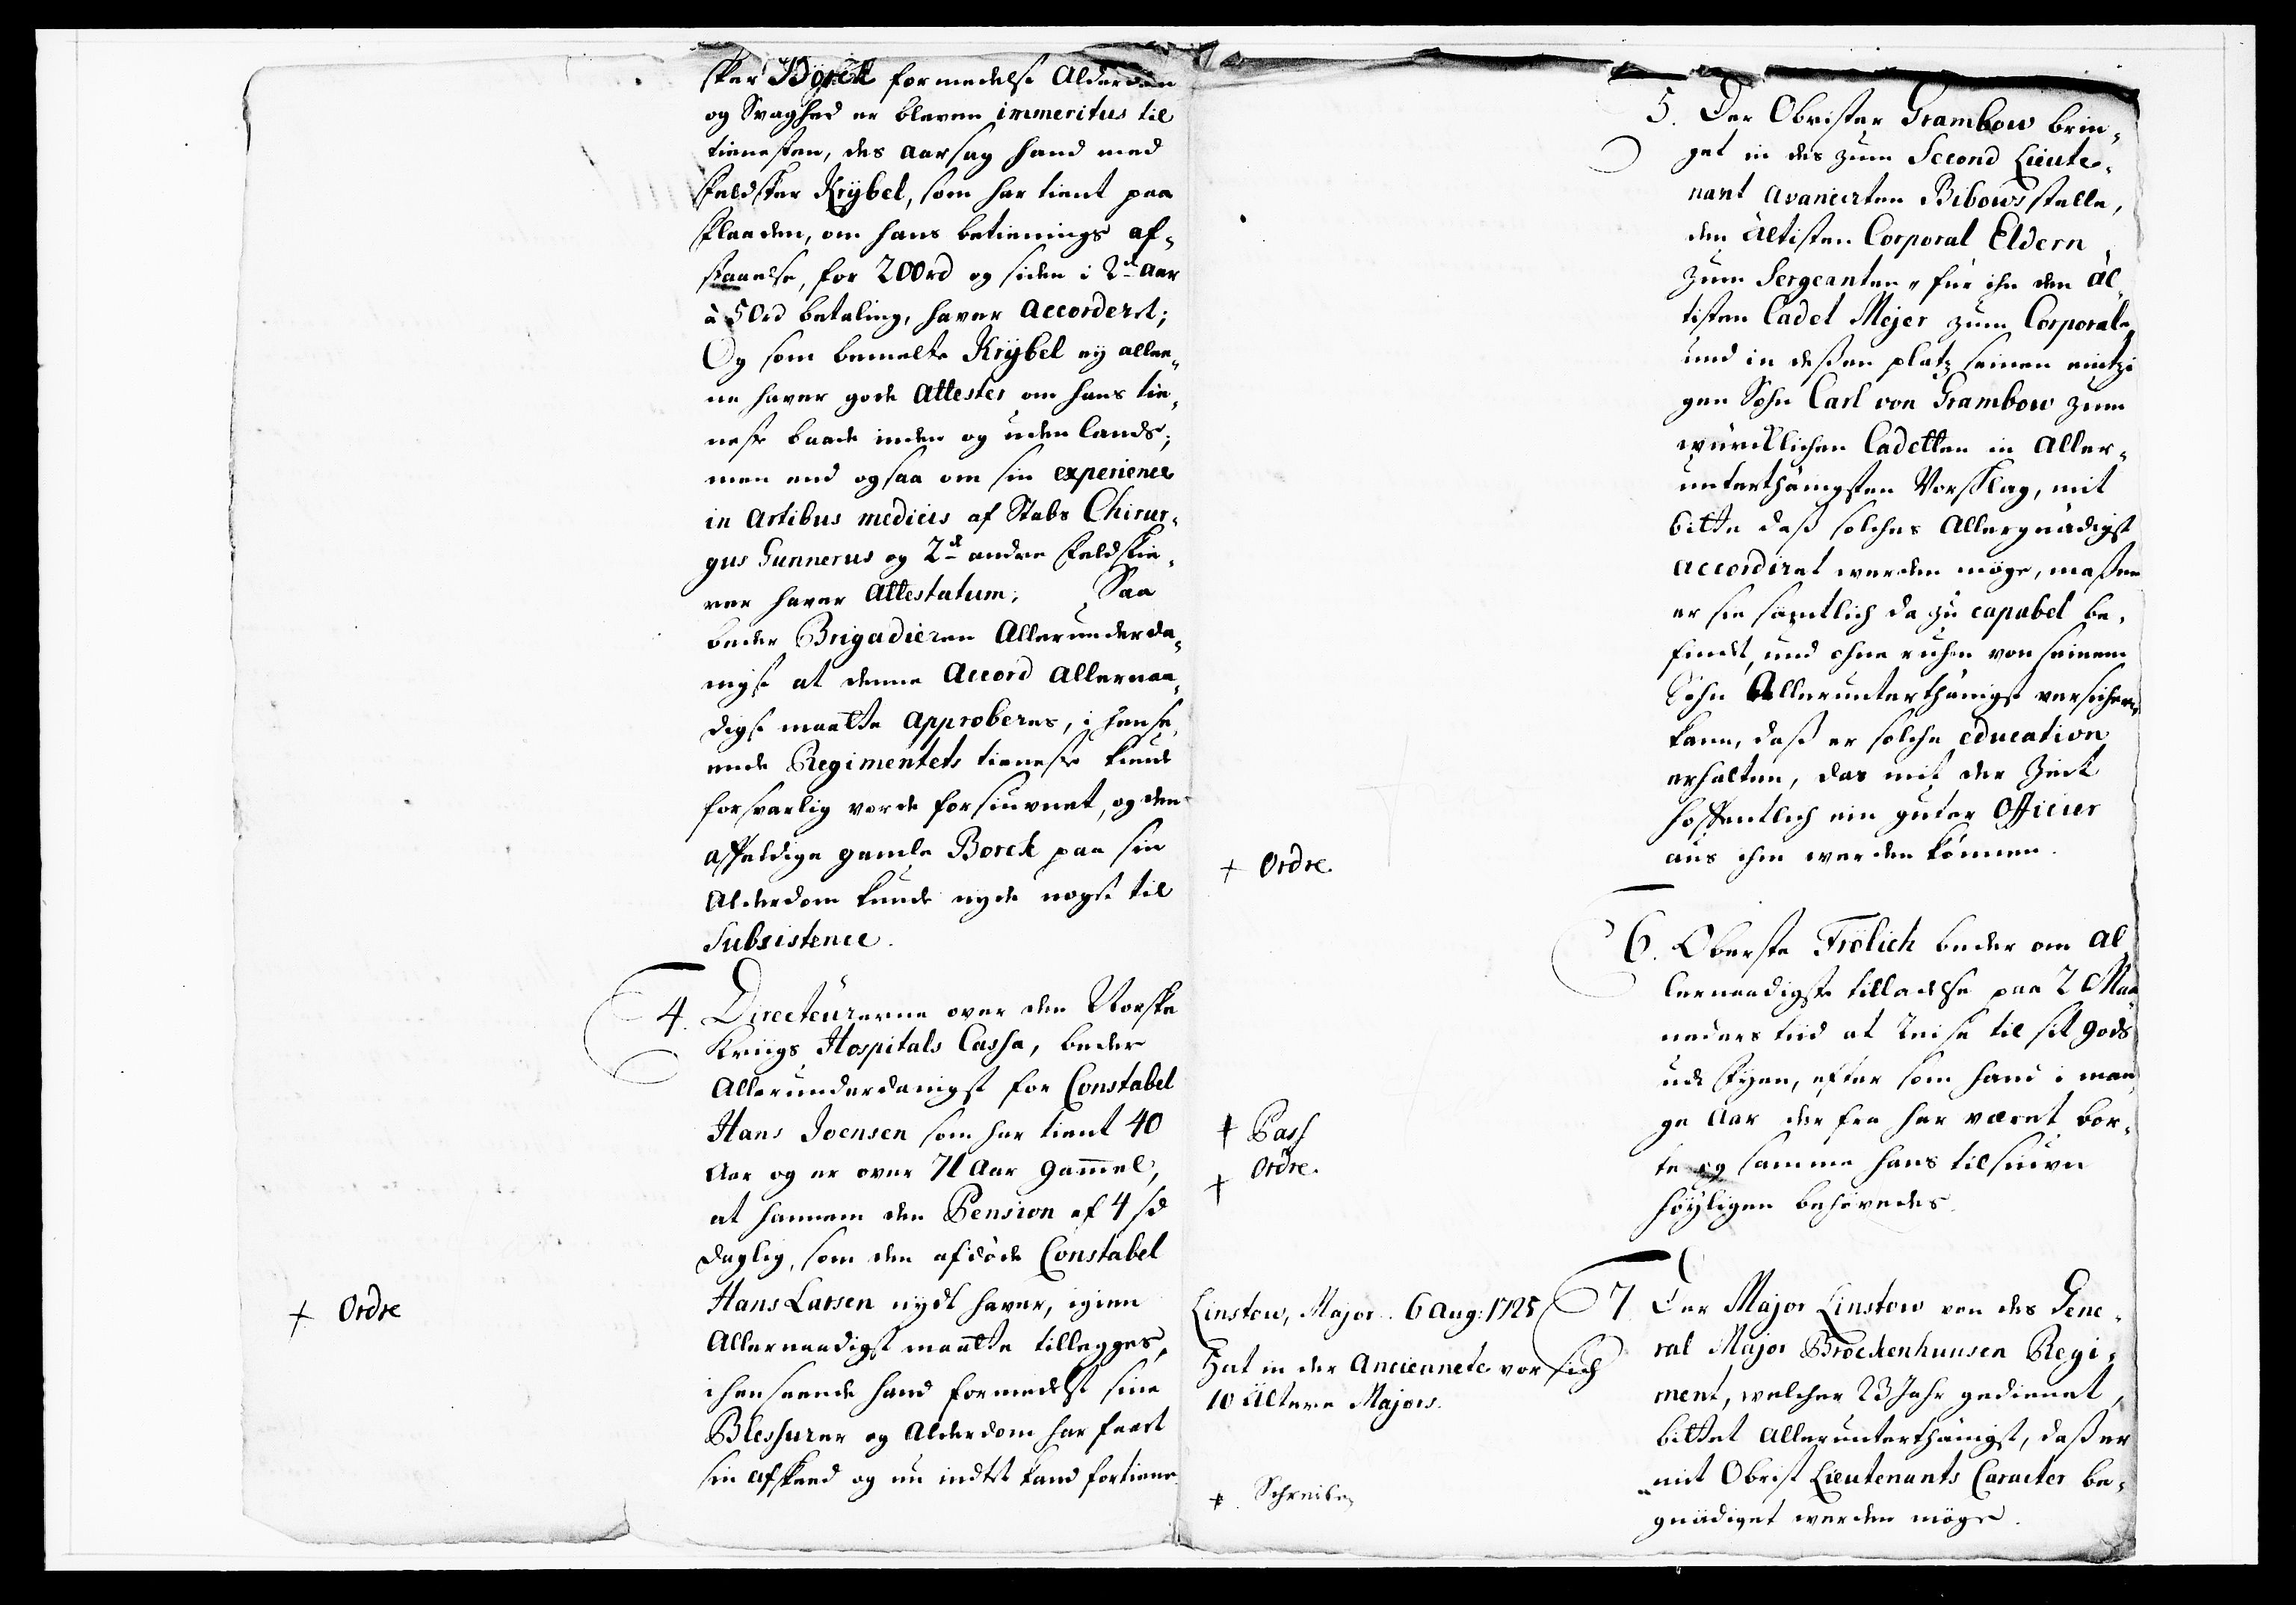 sker Borck formedelst Alderdom
og Svaghed er bleven immeritus til
tienesten, des aarsag hand med
Feldskier Krybel, som har tient paa
Flaaden, om hans betienings af„
staaelse, for 200rd og siden i 2de Aar
à 50rd betaling, haver Accorderet;
Og som bemelte Krybel ey allee„
ne haver gode Attester om hans tie„
neste baade inden og uden Lands;
men end ogsaa om sin experience
in Artibus medicis af Stabs Chirur„
gus Gunnerus og 2de andre Feldskie„
rer haver Attestatum; Saa
beder Brigadieren Allerunderda„
nigst at denne Accord Allernaa„
digst maatte Approberes, i hense„
ende Regimentets tieneste kunde
forsvarlig vorde forsiunet, og den
affeldige gamle Borck paa sin
Alderdom kunde nyde noget til
Subsistence.
4. Directeürerne over den Norske
Kriigs Hospitals Cassa, beder
Allerunderdanigst for Constabel
Hans Joensen som har tient 40
Aar og er over 71 Aar gammel,
at hannem den Pension af 4 sd
daglig, som den afdöde Constabel
Hans Larsen nydt haver, igien
Allernaadigst maatte tillegges,
ihenseende hand formedelst sine
Blessurer og Alderdom har faaet
sin afskeed og nu intet kand fortiene.
+ Ordre
5. Der Obrister Grambow brin„
get in des zum Second Lieute„
nant avancirten Bibows stelle,
den ältisten Corporal Eldern
zum Sergeanten, für ihn den äl„
tisten Cadet Mejer zum Corporal,
und in deßen platz seinen eintzi
gen Sohn Carl von Grambow zum
würcklichen Cadetten in Aller„
unterthänigsten Vorschlag, mit
bitte daß solches Allergnädigst
accordiret werden möge, maßen
er sie sämtlich da zu capabel be„
findet, und ohne ruhm von seinem
Sohn Allerunterthänigst versichern
kann, daß er solche education
erhalten, das mit der Zeit
hoffentlich ein guter Officier
aus ihm werden können.
+ Ordre
6. Oberste Frölich beder om Al„
lernaadigste tilladelse paa 2 Maa
neders tiid at Reise til sit gods
udi Fyen, efter som hand i man„
ge Aar der fra har været bor„
te og samme hans tilsiun
höyligen behövedes.
+ Pass
+ Ordre.
7. Der Major Linstow von des Gene„
ral Major Bröckenhuusen Regi„
ment, welcher 23 Jahr gedienet,
bittet Allerunterthänigst, daß er
mit Obrist Lieutenants Caracter be„
gnädiget werden möge.
Linstow, Major. 6 Aug: 1725
Hat in der Anciennete vor sich
10 Ältere Majors.
+. Schreiben